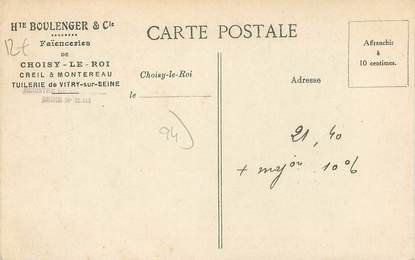 Hte BOULENGER & Cie
Faïenceries
DE
CHOISY-LE-ROI
CREIL & MONTEREAU
TUILERIE de VITRY-sur-SEINE
12€
CARTE POSTALE
Affranchir
à
10 centimes.
Choisy-le-Roi
le
Adresse
94)
21,40
+ majon 10%